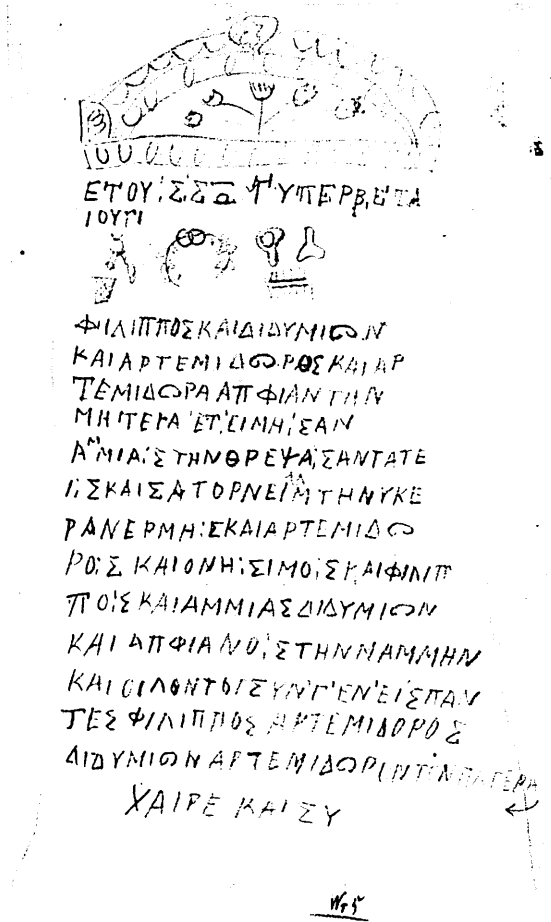 ΕΤΟΥΣ ΣΞΔ ΥΠΕΡΒΕΤΑ
ΙΟΥΓΙ
ΦΙΛΙΠΠΟΣΚΑΙΔΙΔΥΜΙΩΝ
ΚΑΙΑΡΤΕΜΙΔΩΡΟΣΚΑΙΑΡ
ΤΕΜΙΔΩΡΑΑΠΦΙΑΝΤΗΝ
ΜΗΤΕΡΑ ΕΤΕΙΜΗΣΑΝ
ΑΜΜΙΑΣΤΗΝΘΡΕΨΑΣΑΝΤΑΤΕ
ΙΣΚΑΙΣΑΤΟΡΝΕΙ ΤΗΝΥΚΕ
ΡΑΝΕΡΜΗΣΚΑΙΑΡΤΕΜΙΔΩ
ΡΟΣ ΚΑΙΟΝΗΣΙΜΟΣΚΑΙΦΙΛΙΠ
ΠΟΣΚΑΙΑΜΜΙΑΣΔΙΔΥΜΙΩΝ
ΚΑΙ ΑΠΦΙΑΝΟΣΤΗΝΝΑΜΜΗΝ
ΚΑΙΟΙΛΟΝΤΟΙΣΥΝΓΕΝΕΙΣΠΑΝ
ΤΕΣ ΦΙΛΙΠΠΟΣ ΑΡΤΕΜΙΔΟΡΟΣ
ΔΙΔΥΜΙΩΝ ΑΡΤΕΜΙΔΩΡΙΝΤΙΝΠΑΤΕΡΑ
ΧΑΙΡΕ ΚΑΙ ΣΥ